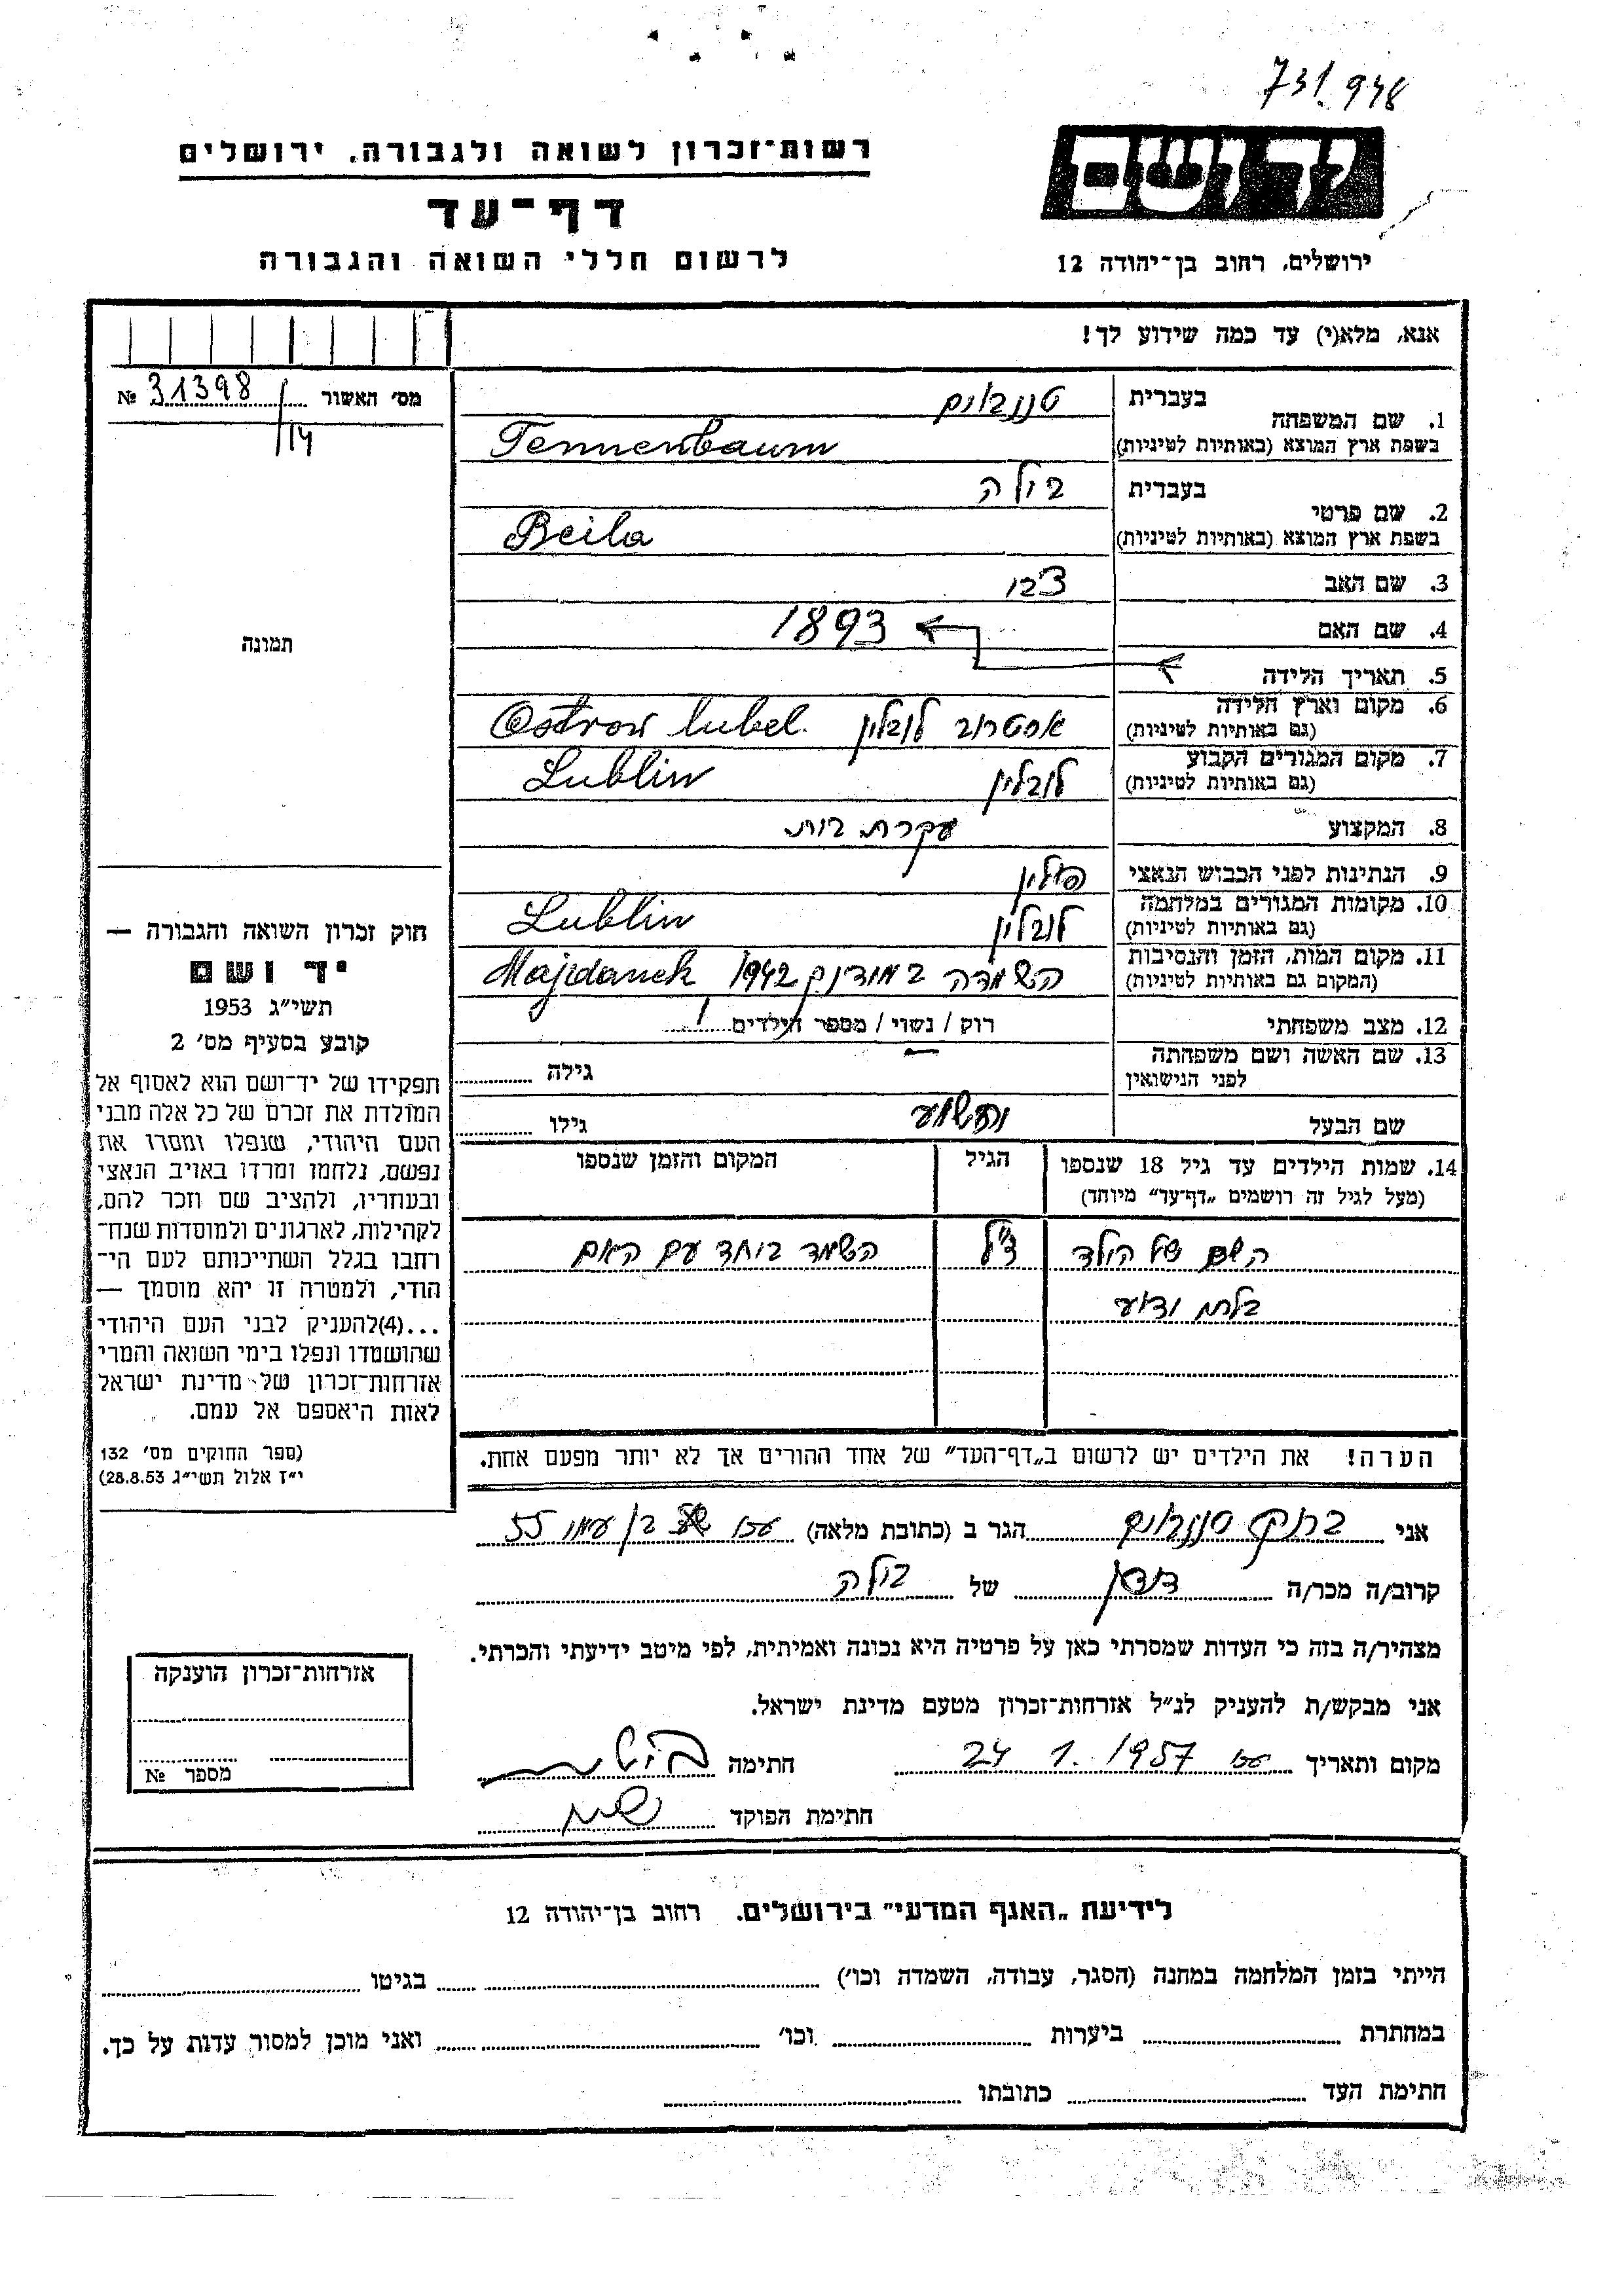 731948
רשות־זכרון לשואה ולגבורה, ירושלים
יד ושם
דף־עד
לרשום חללי השואה והגבורה
ירושלים, רחוב בן־יהודה 12
אנא, מלא(י) עד כמה שידוע לך!
מס׳ האשור № 31398
/14
1. שם המשפחה בעברית טננבוים
בשפת ארץ המוצא (באותיות לטיניות) Tennenbaum
2. שם פרטי בעברית בילה
בשפת ארץ המוצא (באותיות לטיניות) Beila
3. שם האב
4. שם האם 1893
5. תאריך הלידה
6. מקום וארץ הלידה (גם באותיות לטיניות) אוסטרוב לובלין Ostrow lubel.
7. מקום המגורים הקבוע (גם באותיות לטיניות) לובלין Lublin
8. המקצוע עקרת בית
9. הנתינות לפני הכבוש הנאצי פולין
10. מקומות המגורים במלחמה (גם באותיות לטיניות) לובלין Lublin
11. מקום המות, הזמן והנסיבות (המקום גם באותיות לטיניות) השמדה במידנק 1942 Majdanek
12. מצב משפחתי רוק / נשוי / מספר הילדים 1
13. שם האשה ושם משפחתה לפני הנישואין גילה
שם הבעל יהושוע גילו
14. שמות הילדים עד גיל 18 שנספו (מעל לגיל זה רושמים „דף־עד״ מיוחד) הגיל המקום והזמן שנספו
השם של הילד השמד ביחד עם האם
בלתי ידוע
הערה! את הילדים יש לרשום ב„דף־העד״ של אחד ההורים אך לא יותר מפעם אחת.
תמונה
חוק זכרון השואה והגבורה —
יד ושם
תשי״ג 1953
קובע בסעיף מס׳ 2
תפקידו של יד־ושם הוא לאסוף אל
המולדת את זכרם של כל אלה מבני
העם היהודי, שנפלו ומסרו את
נפשם, נלחמו ומרדו באויב הנאצי
ובעוזריו, ולהציב שם וזכר להם,
לקהילות, לארגונים ולמוסדות שנח־
רחבו בגלל השתייכותם לעם הי־
הודי, ולמטרה זו יהא מוסמך —
...(4)להעניק לבני העם היהודי
שהושמדו ונפלו בימי השואה והמרי
אזרחות־זכרון של מדינת ישראל
לאות היאספם אל עמם.
(ספר החוקים מס׳ 132
י״ז אלול תשי״ג 28.8.53)
אני טננבוים הגר ב (כתובת מלאה) בן עמי 55
קרוב/ה מכר/ה של בילה
מצהיר/ה בזה כי העדות שמסרתי כאן על פרטיה היא נכונה ואמיתית, לפי מיטב ידיעתי והכרתי.
אני מבקש/ת להעניק לנ״ל אזרחות־זכרון מטעם מדינת ישראל.
מקום ותאריך עכו 24 1. 1957 חתימה
חתימת הפוקד
אזרחות־זכרון הוענקה
מספר №
לידיעת „האגף המדעי״ בירושלים. רחוב בן־יהודה 12
הייתי בזמן המלחמה במחנה (הסגר, עבודה, השמדה וכו׳) בגיטו
במחתרת ביערות וכו׳ ואני מוכן למסור עדות על כך.
חתימת העד כתובתו